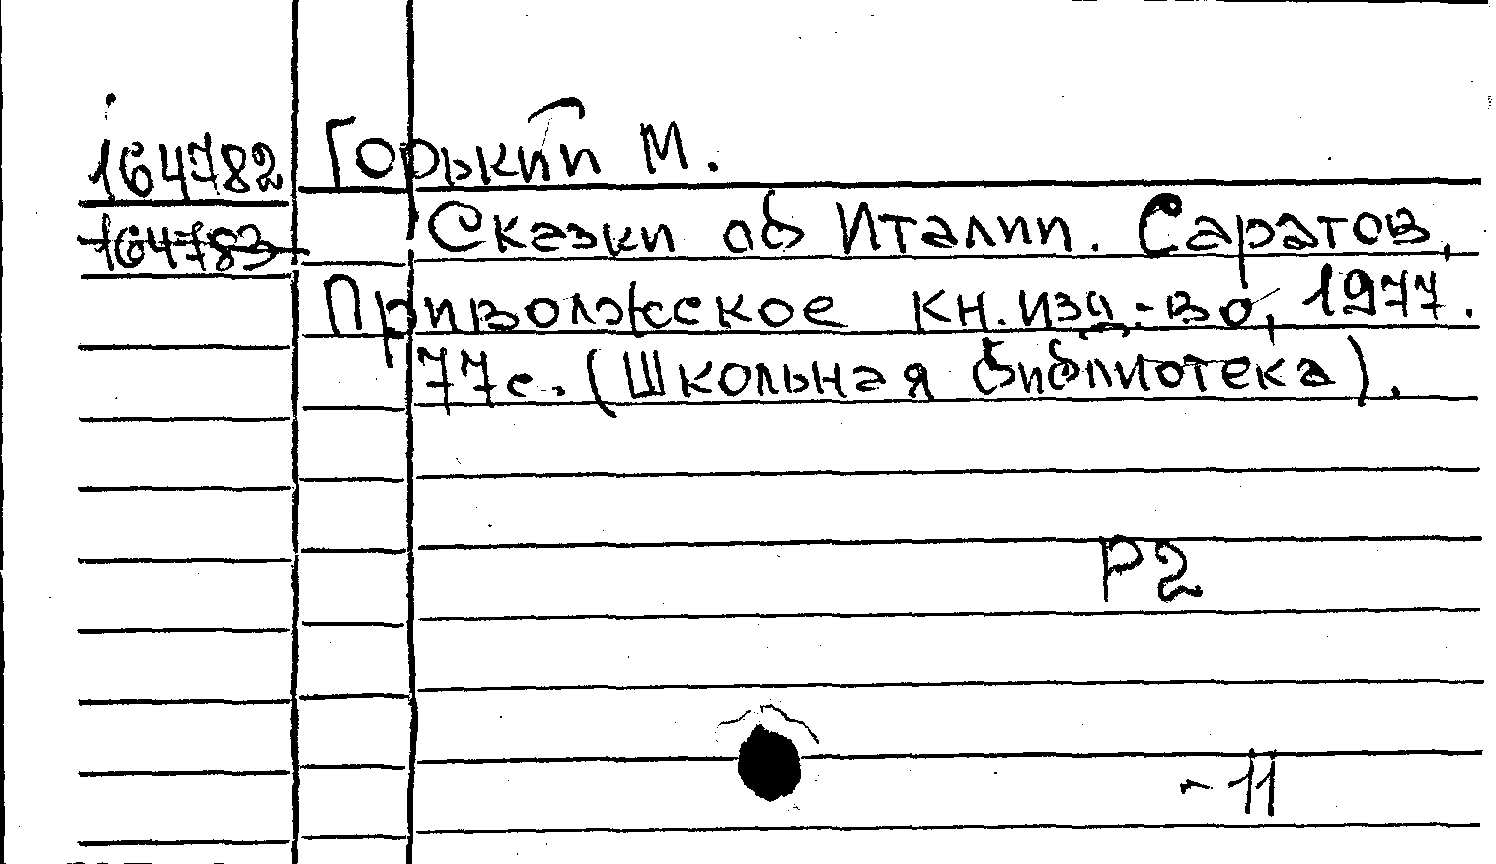 164782 Горький М.
164783 Сказки об Италии. Саратов,
Приволжское кн. изд-во, 1977.
77с. (Школьная библиотека).
Р2
- 11